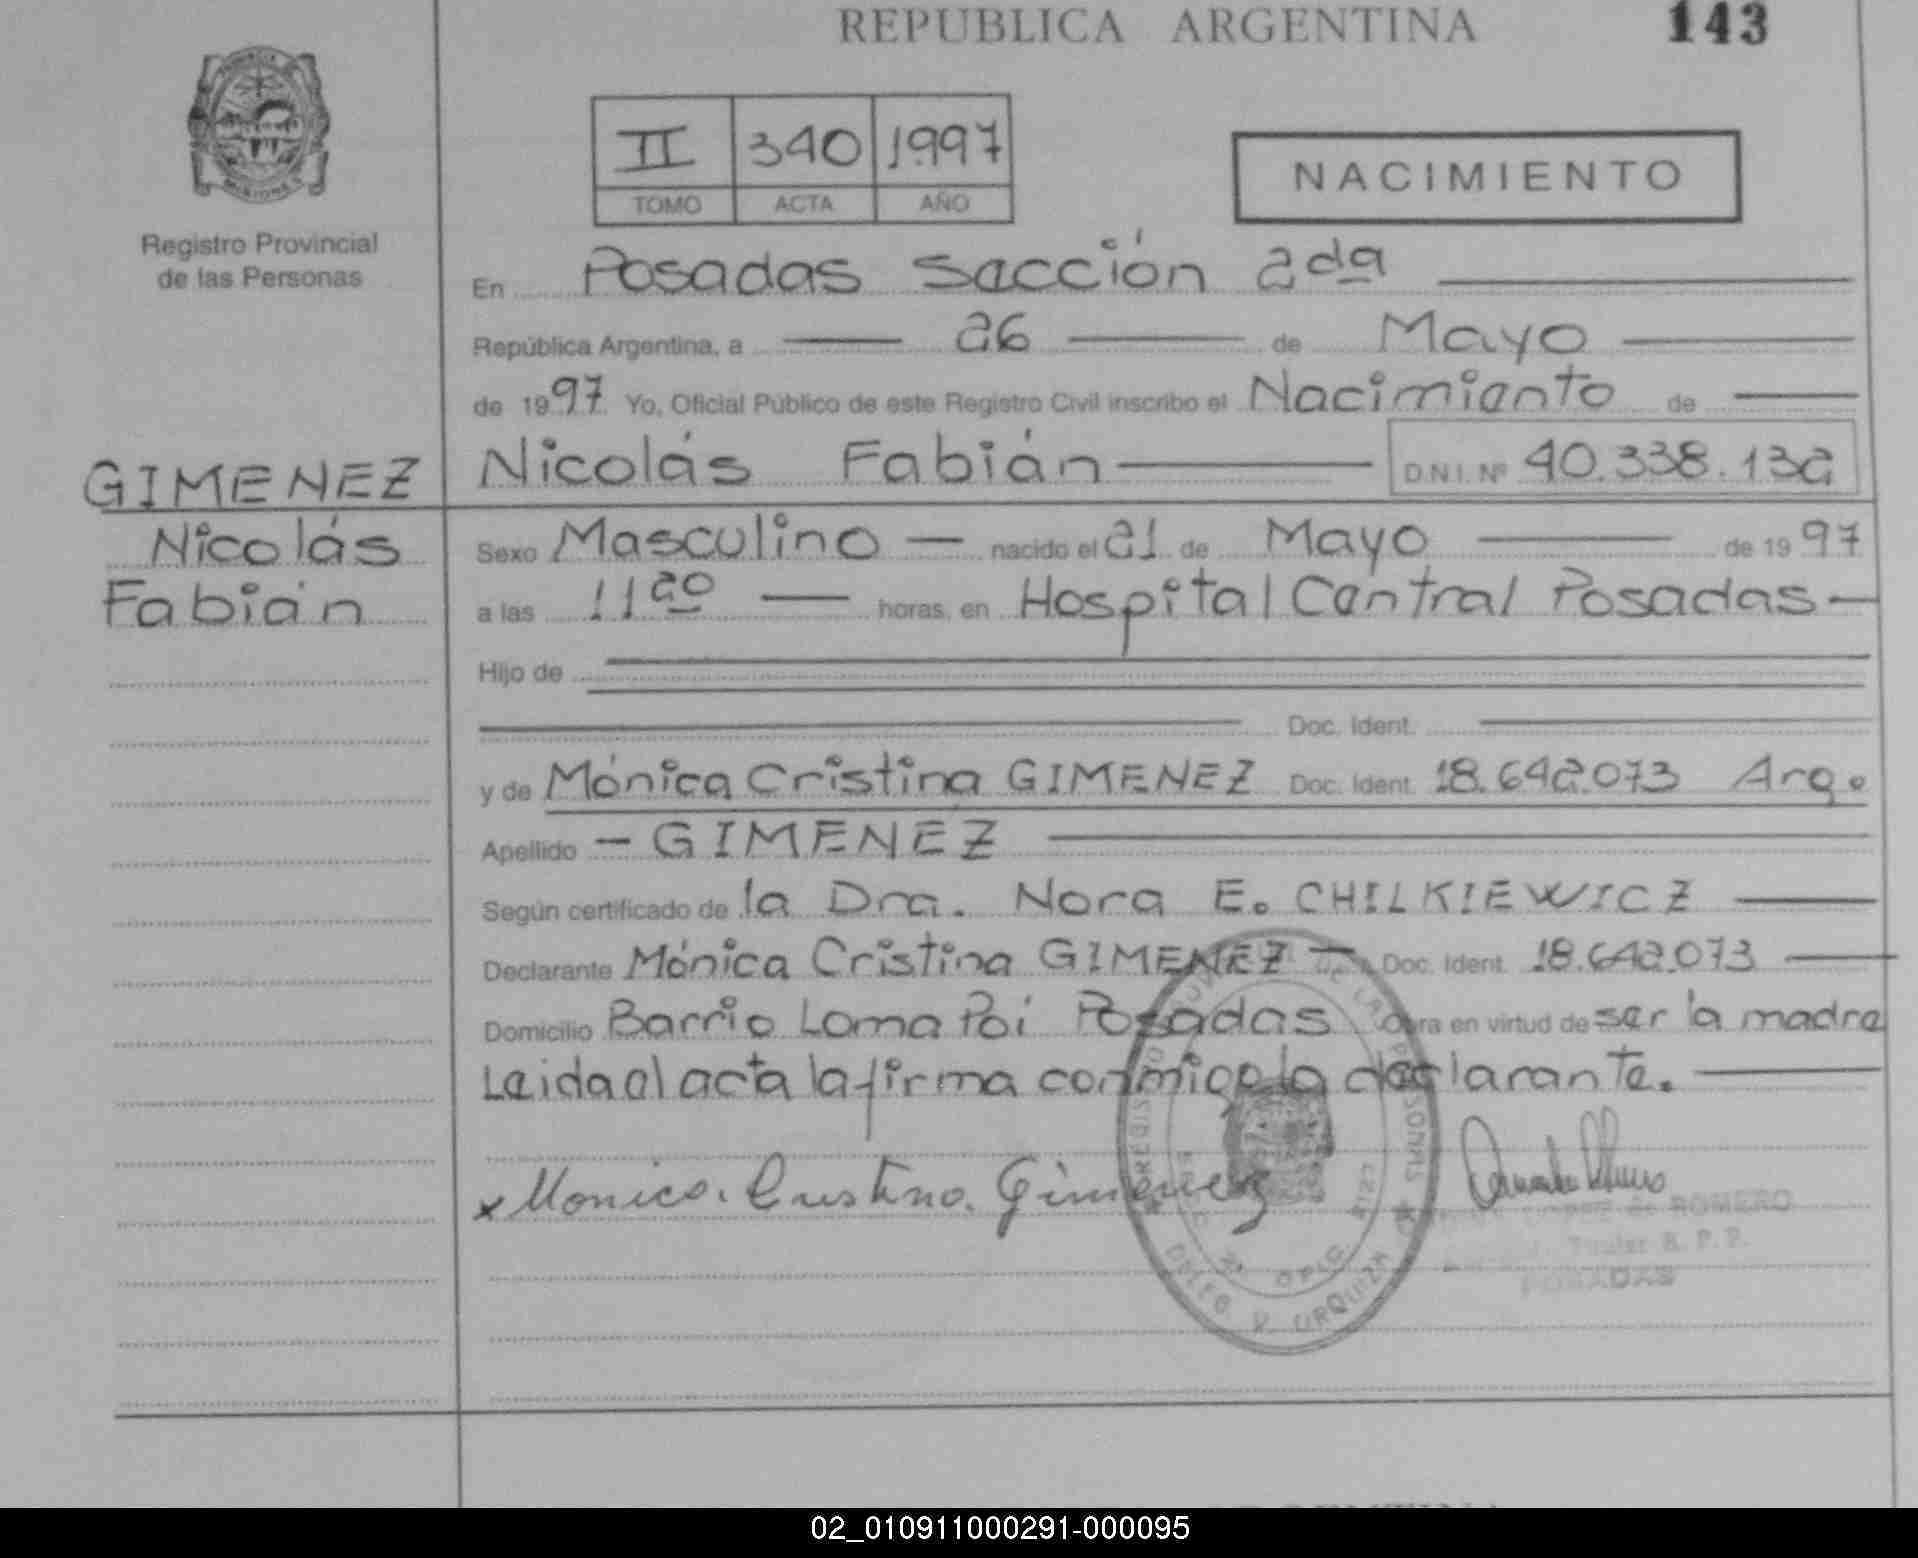 REPUBLICA ARGENTINA 143
MISIONES
Registro Provincial
de las Personas
II 340 1997
TOMO ACTA AÑO
NACIMIENTO
En Posadas Sección 2da
República Argentina, a 26 de Mayo
de 1997 Yo, Oficial Público de este Registro Civil inscribo el Nacimiento de
GIMENEZ Nicolás Fabián D.N.I. Nº 40.338.132
Nicolás Sexo Masculino nacido el 21 de Mayo de 1997
Fabián a las 11 20 horas, en Hospital Central Posadas
Hijo de
Doc. Ident.
y de Mónica Cristina GIMENEZ Doc. Ident. 18.642.073 Arg.
Apellido GIMENEZ
Según certificado de la Dra. Nora E. CHILKIEWICZ
Declarante Mónica Cristina GIMENEZ Doc. Ident. 18.642.073
Domicilio Barrio Loma Poi Posadas Obra en virtud de ser la madre
Leida el acta la firma conmigo la declarante.
x Monica Cristina Gimenez
LOPEZ de ROMERO
Titular R. P. P.
POSADAS
DELEG V. URQUIZA
02_010911000291-000095